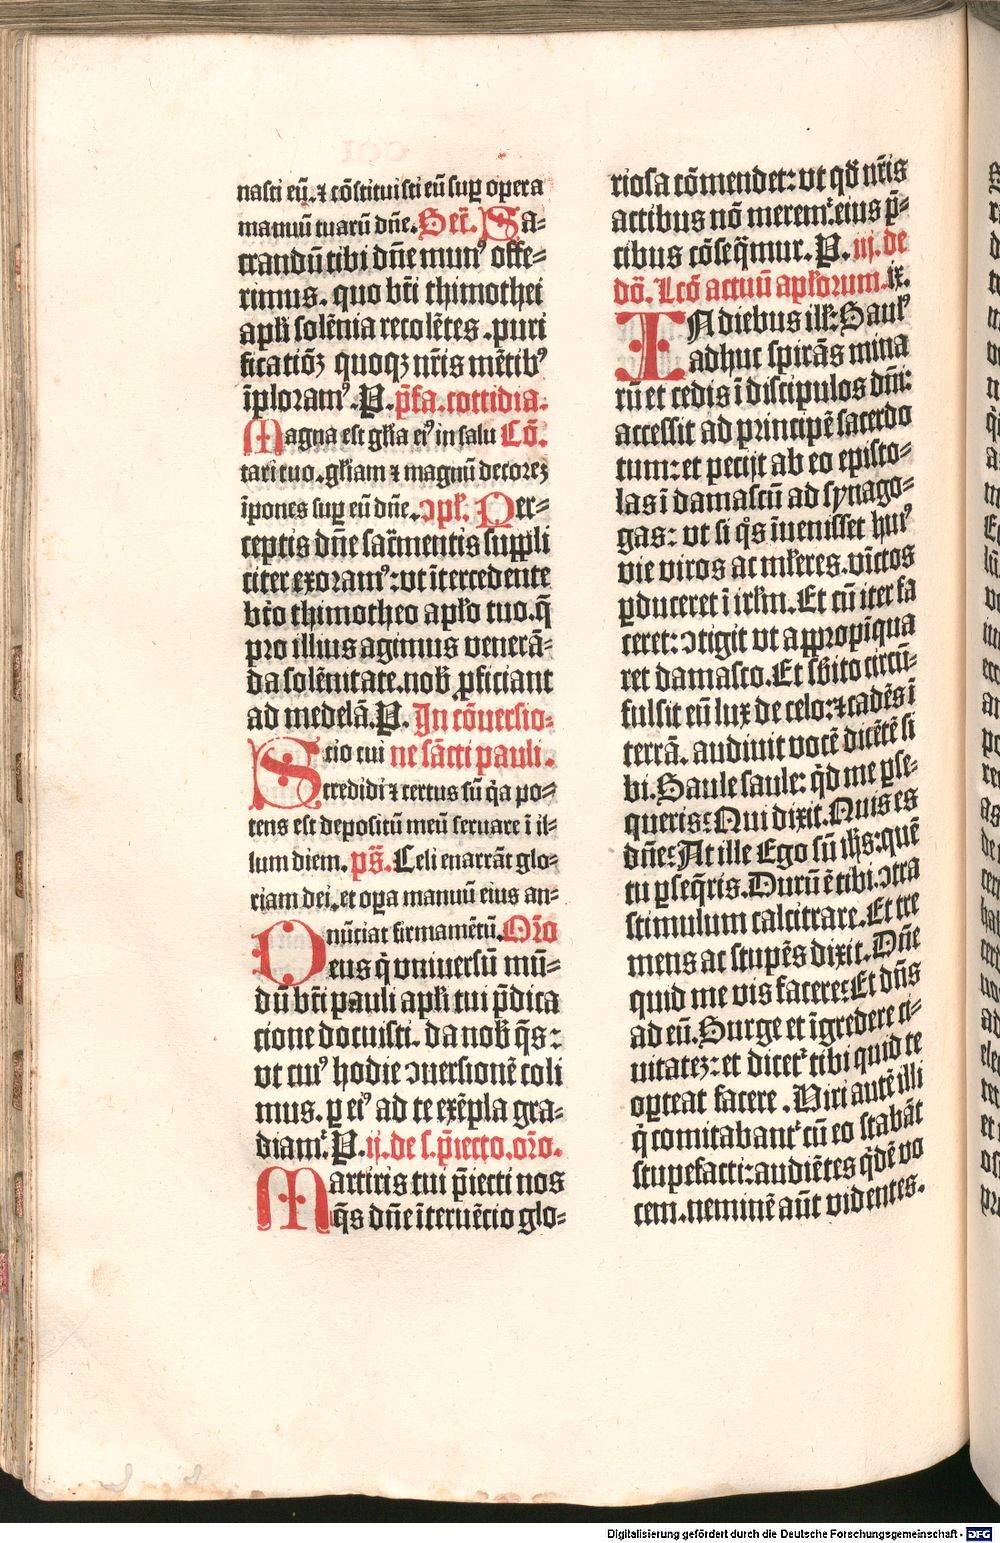 nasti eū. ⁊ cōstituisti eū suꝑ opera
manuū tuarū dn̄e. Secr̄. Sa-
crandū tibi dn̄e munꝰ offe-
rimus. quo bt̄i thimothei
apl̄i solēnia recolētes. puri
ficatiōꝫ quoqꝫ nr̄is mētibꝰ
īploramꝰ. P. p̄fa. cottidia.
Magna est gl̄ia eiꝰ in salu Cō.
tari tuo. gl̄iam ⁊ magnū decoreꝫ
īpones suꝑ eū dn̄e. ꝯpl̄. Per-
ceptis dn̄e sacr̄mentis suppli
citer exoramꝰ: vt ītercedente
bt̄o thimotheo apl̄o tuo. q̄
pro illius agimus venerā-
da solēnitate. nob̄ ꝓficiant
ad medelā. P. In cōuersio-
Scio cui ne sācti pauli.
credidi ⁊ certus sū q̄a po-
tens est depositū meū seruare ī il-
lum diem. ps̄. Celi enarrāt glo-
riam dei. et oꝑa manuū eius an-
nūciat firmamētū. Oro
Deus q̄ vniuersū mū-
dū bt̄i pauli apl̄i tui p̄dica
cione docuisti. da nob̄ q̄s:
vt cuiꝰ hodie ꝯuersionē coli
mus. ꝑ eiꝰ ad te exēpla gra-
diamr̄. P. ij. de s. p̄iecto. oro.
Martiris tui p̄iecti nos
q̄s dn̄e īteruēcio glo-
riosa cōmendet: vt qd̄ nr̄is
actibus nō meremr̄. eius p̄-
cibus cōseq̄mur. P. iij. de
dō. Lcō actuū apl̄orum. ix.
IN diebus ill̄: Saulꝰ
adhuc spirās mina
rū et cedis ī discipulos dn̄i:
accessit ad principē sacerdo
tum: et pecijt ab eo episto-
las ī damascū ad synago-
gas: vt si q̄s īuenisset huiꝰ
vie viros ac ml̄ieres. vīctos
ꝑduceret ī irl̄m. Et cū iter fa
ceret: ꝯtigit vt appropīqua
ret damasco. Et sb̄ito circū-
fulsit eū lux de celo: ⁊ cadēs ī
terrā. audiuit vocē dicētē si
bi. Saule saule: q̄d me ꝑse-
queris: Qui dixit. Quis es
dn̄e: At ille Ego sū ih̄s: quē
tu ꝑseq̄ris. Durū ē tibi. ꝯtra
stimulum calcitrare. Et tre
mens ac stupēs dixit. Dn̄e
quid me vis facere: Et dn̄s
ad eū. Surge et īgredere ci-
uitateꝫ: et dicetr̄ tibi quid te
oꝑteat facere. Viri autē illi
q̄ comitabantr̄ cū eo stabāt
stupefacti: audiētes q̄dē vo
cem. neminē aūt videntes.
Digitalisierung gefördert durch die Deutsche Forschungsgemeinschaft - DFG